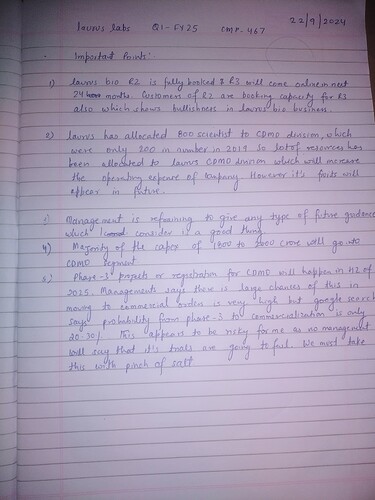 22/9/2024
laurus labs Q1-FY25 CMP-467
- Important Points:
1) laurus bio R2 is fully booked & R3 will come online in next
24 months. Customers of R2 are booking capacity for R3
also which shows bullishness in laurus bio business.
2) laurus has allocated 800 scientist to CDMO division, which
were only 200 in number in 2019. So lot of resources has
been allocated to laurus CDMO division which will increase
the operating expense of company. However it's fruits will
appear in future.
3) Management is refraining to give any type of future guidance
which I consider is a good thing.
4) Majority of the capex of 1800 to 2000 crore will go into
CDMO segment
5) Phase-3 projects or registration for CDMO will happen in H2 of
2025. Managements says there is large chances of this in
moving to commercial orders is very high but google search
says probability from phase-3 to commercialization is only
20-30%. This appears to be risky for me as no management
will say that it's trials are going to fail. We must take
this with pinch of salt